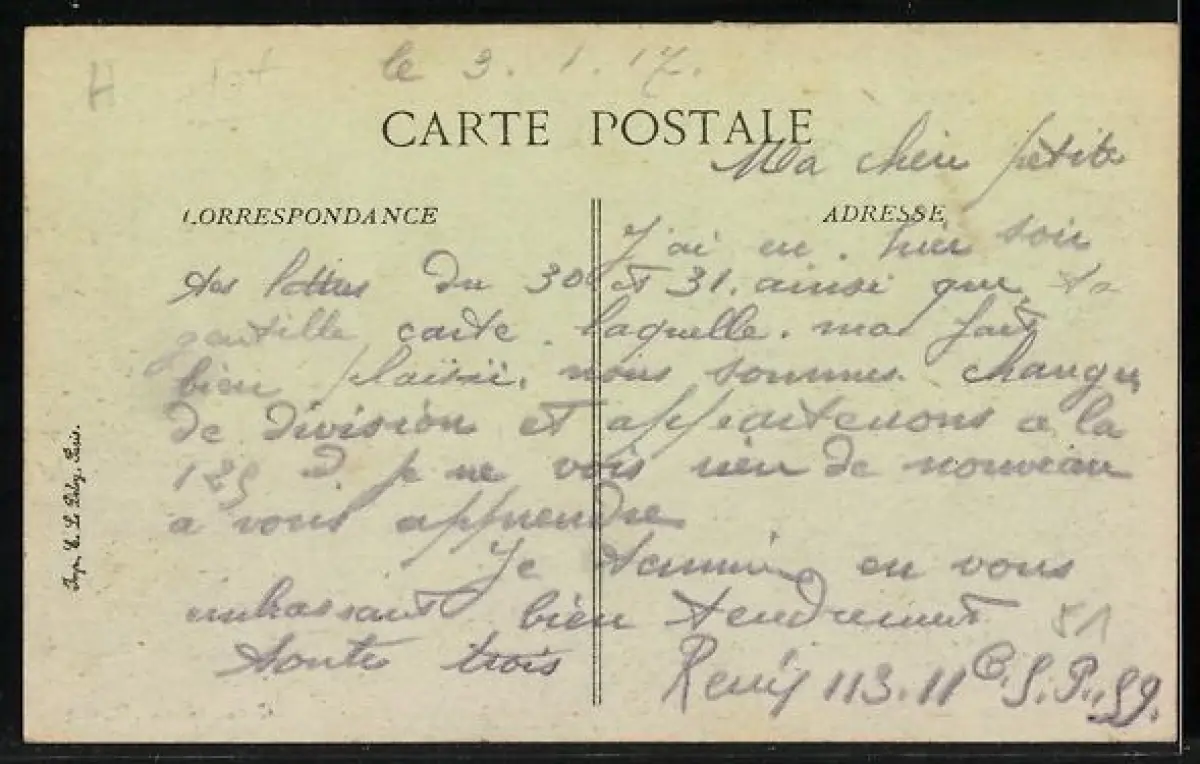 le 3.1.17.
CARTE POSTALE
Ma chère petite
CORRESPONDANCE
ADRESSE
J'ai eu. hier soir
tes lettres du 30 et 31. ainsi que ta
gentille carte. laquelle. ma fait
bien plaisir. nous sommes changés
de division et appartenons a la
129 D. je ne vois rien de nouveau
a vous apprendre
Je termine en vous
embrassant bien tendrement
toutes trois
René 113. 11 C. S. P. 59.
51
Imp. E. Le Deley, Paris.